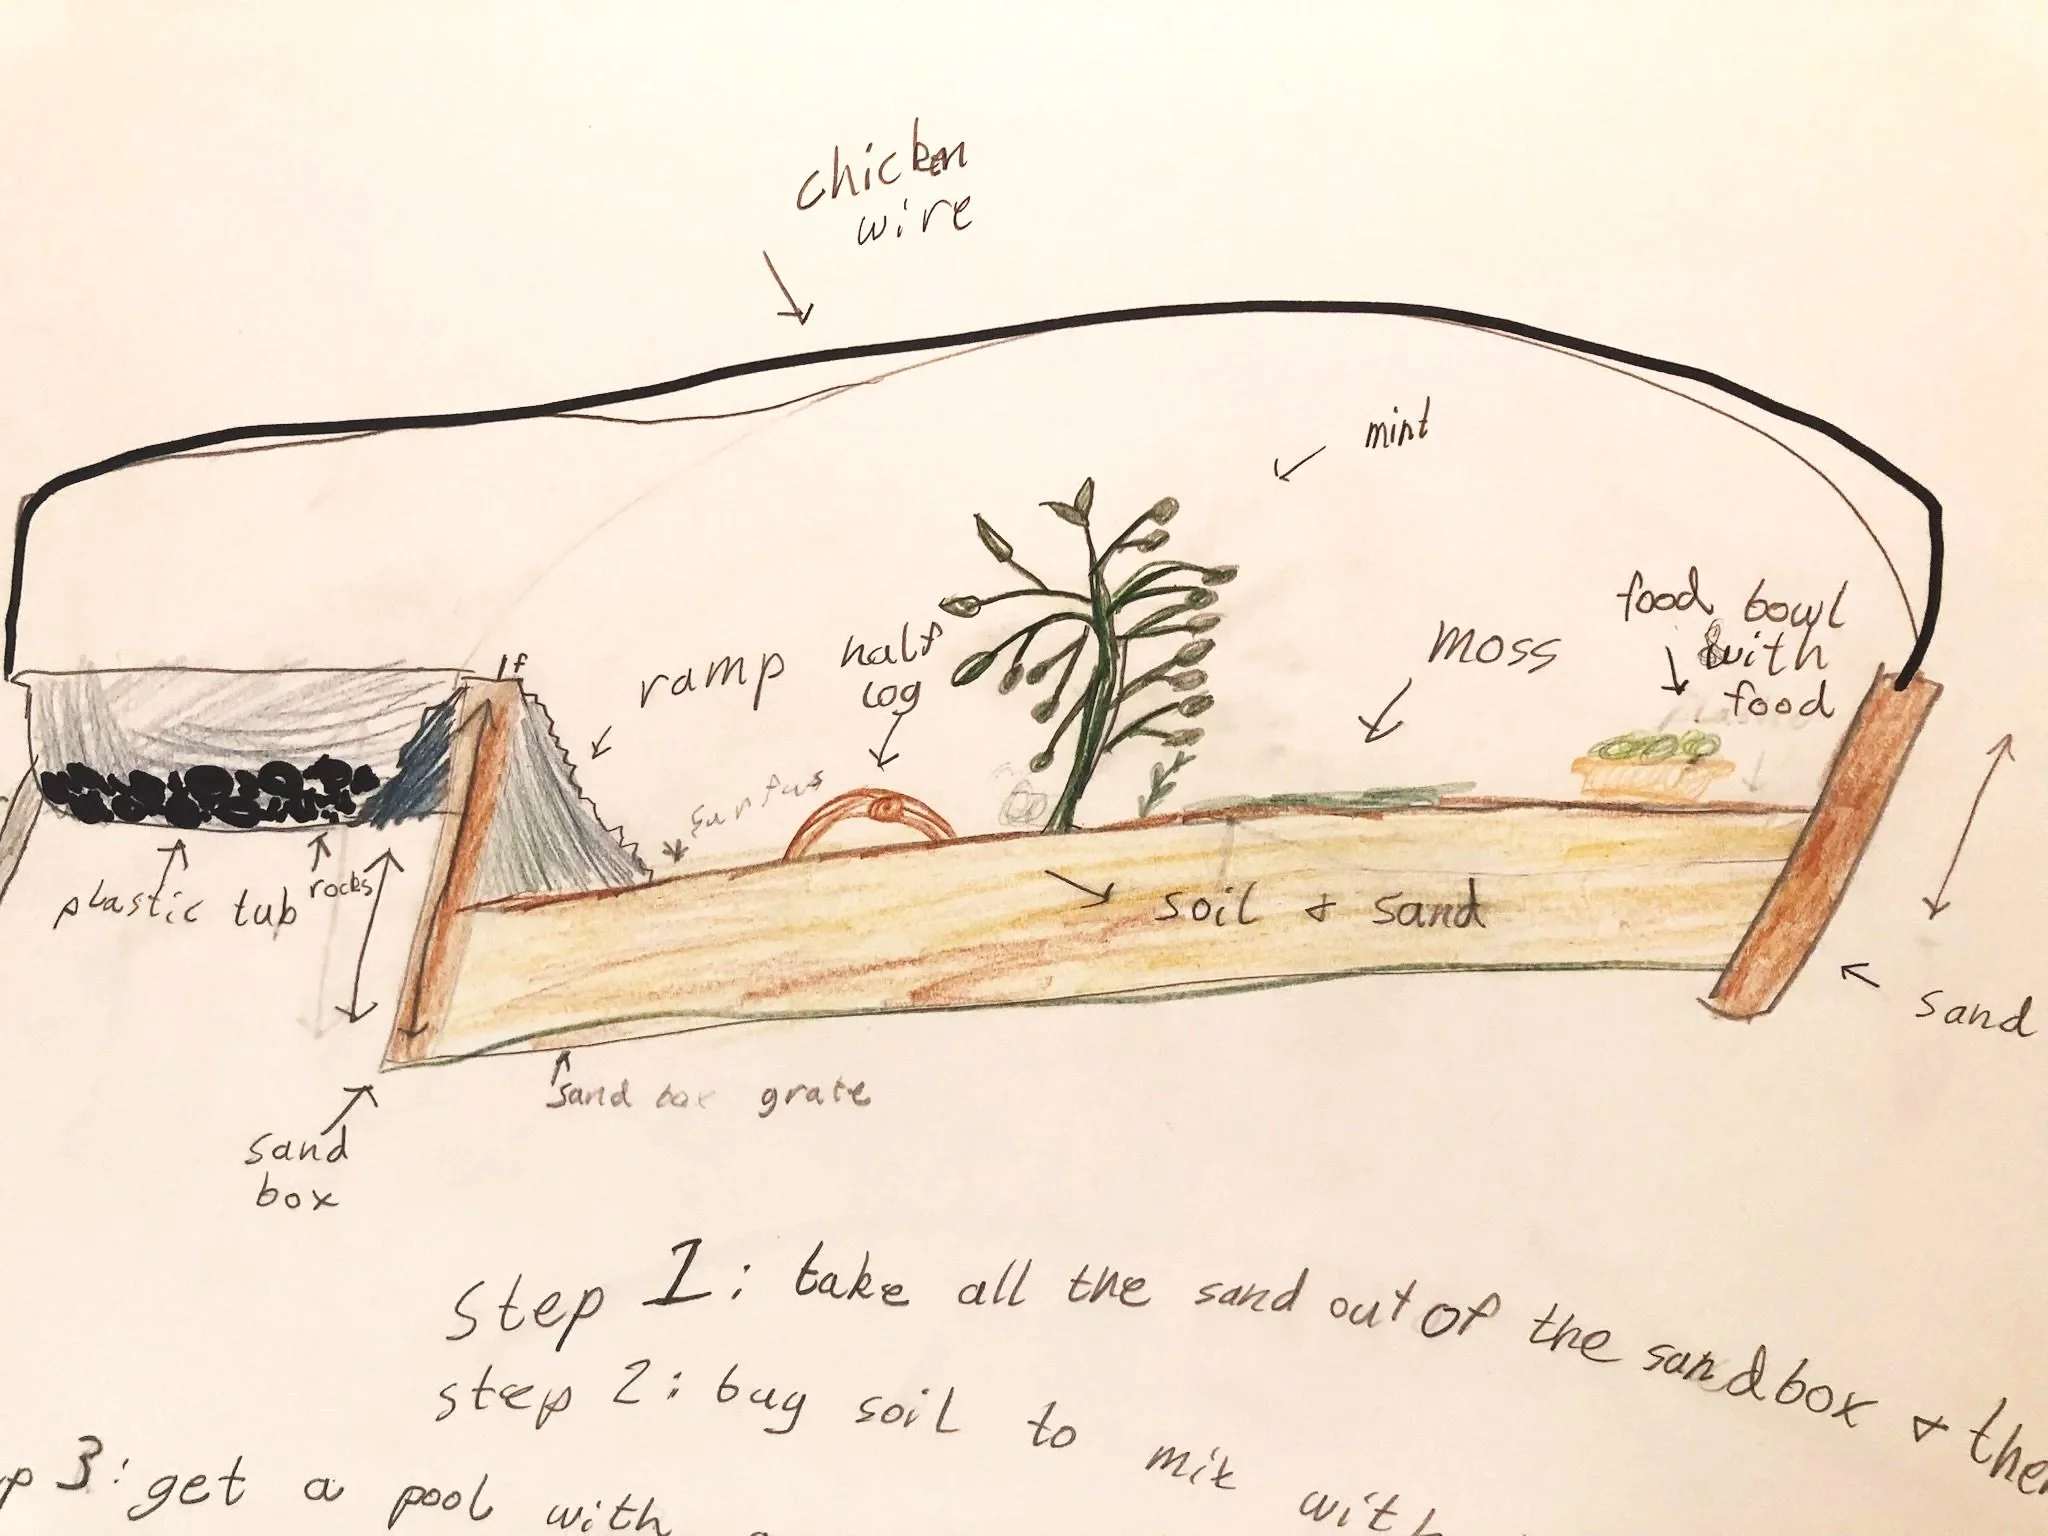 chicken
wire
mint
food bowl
with
food
moss
half
log
ramp
1f
plastic tub
rocks
soil & sand
sand
sand box grate
sand
box
step 1: take all the sand out of the sandbox &
step 2: buy soil to mix with
3: get a pool with